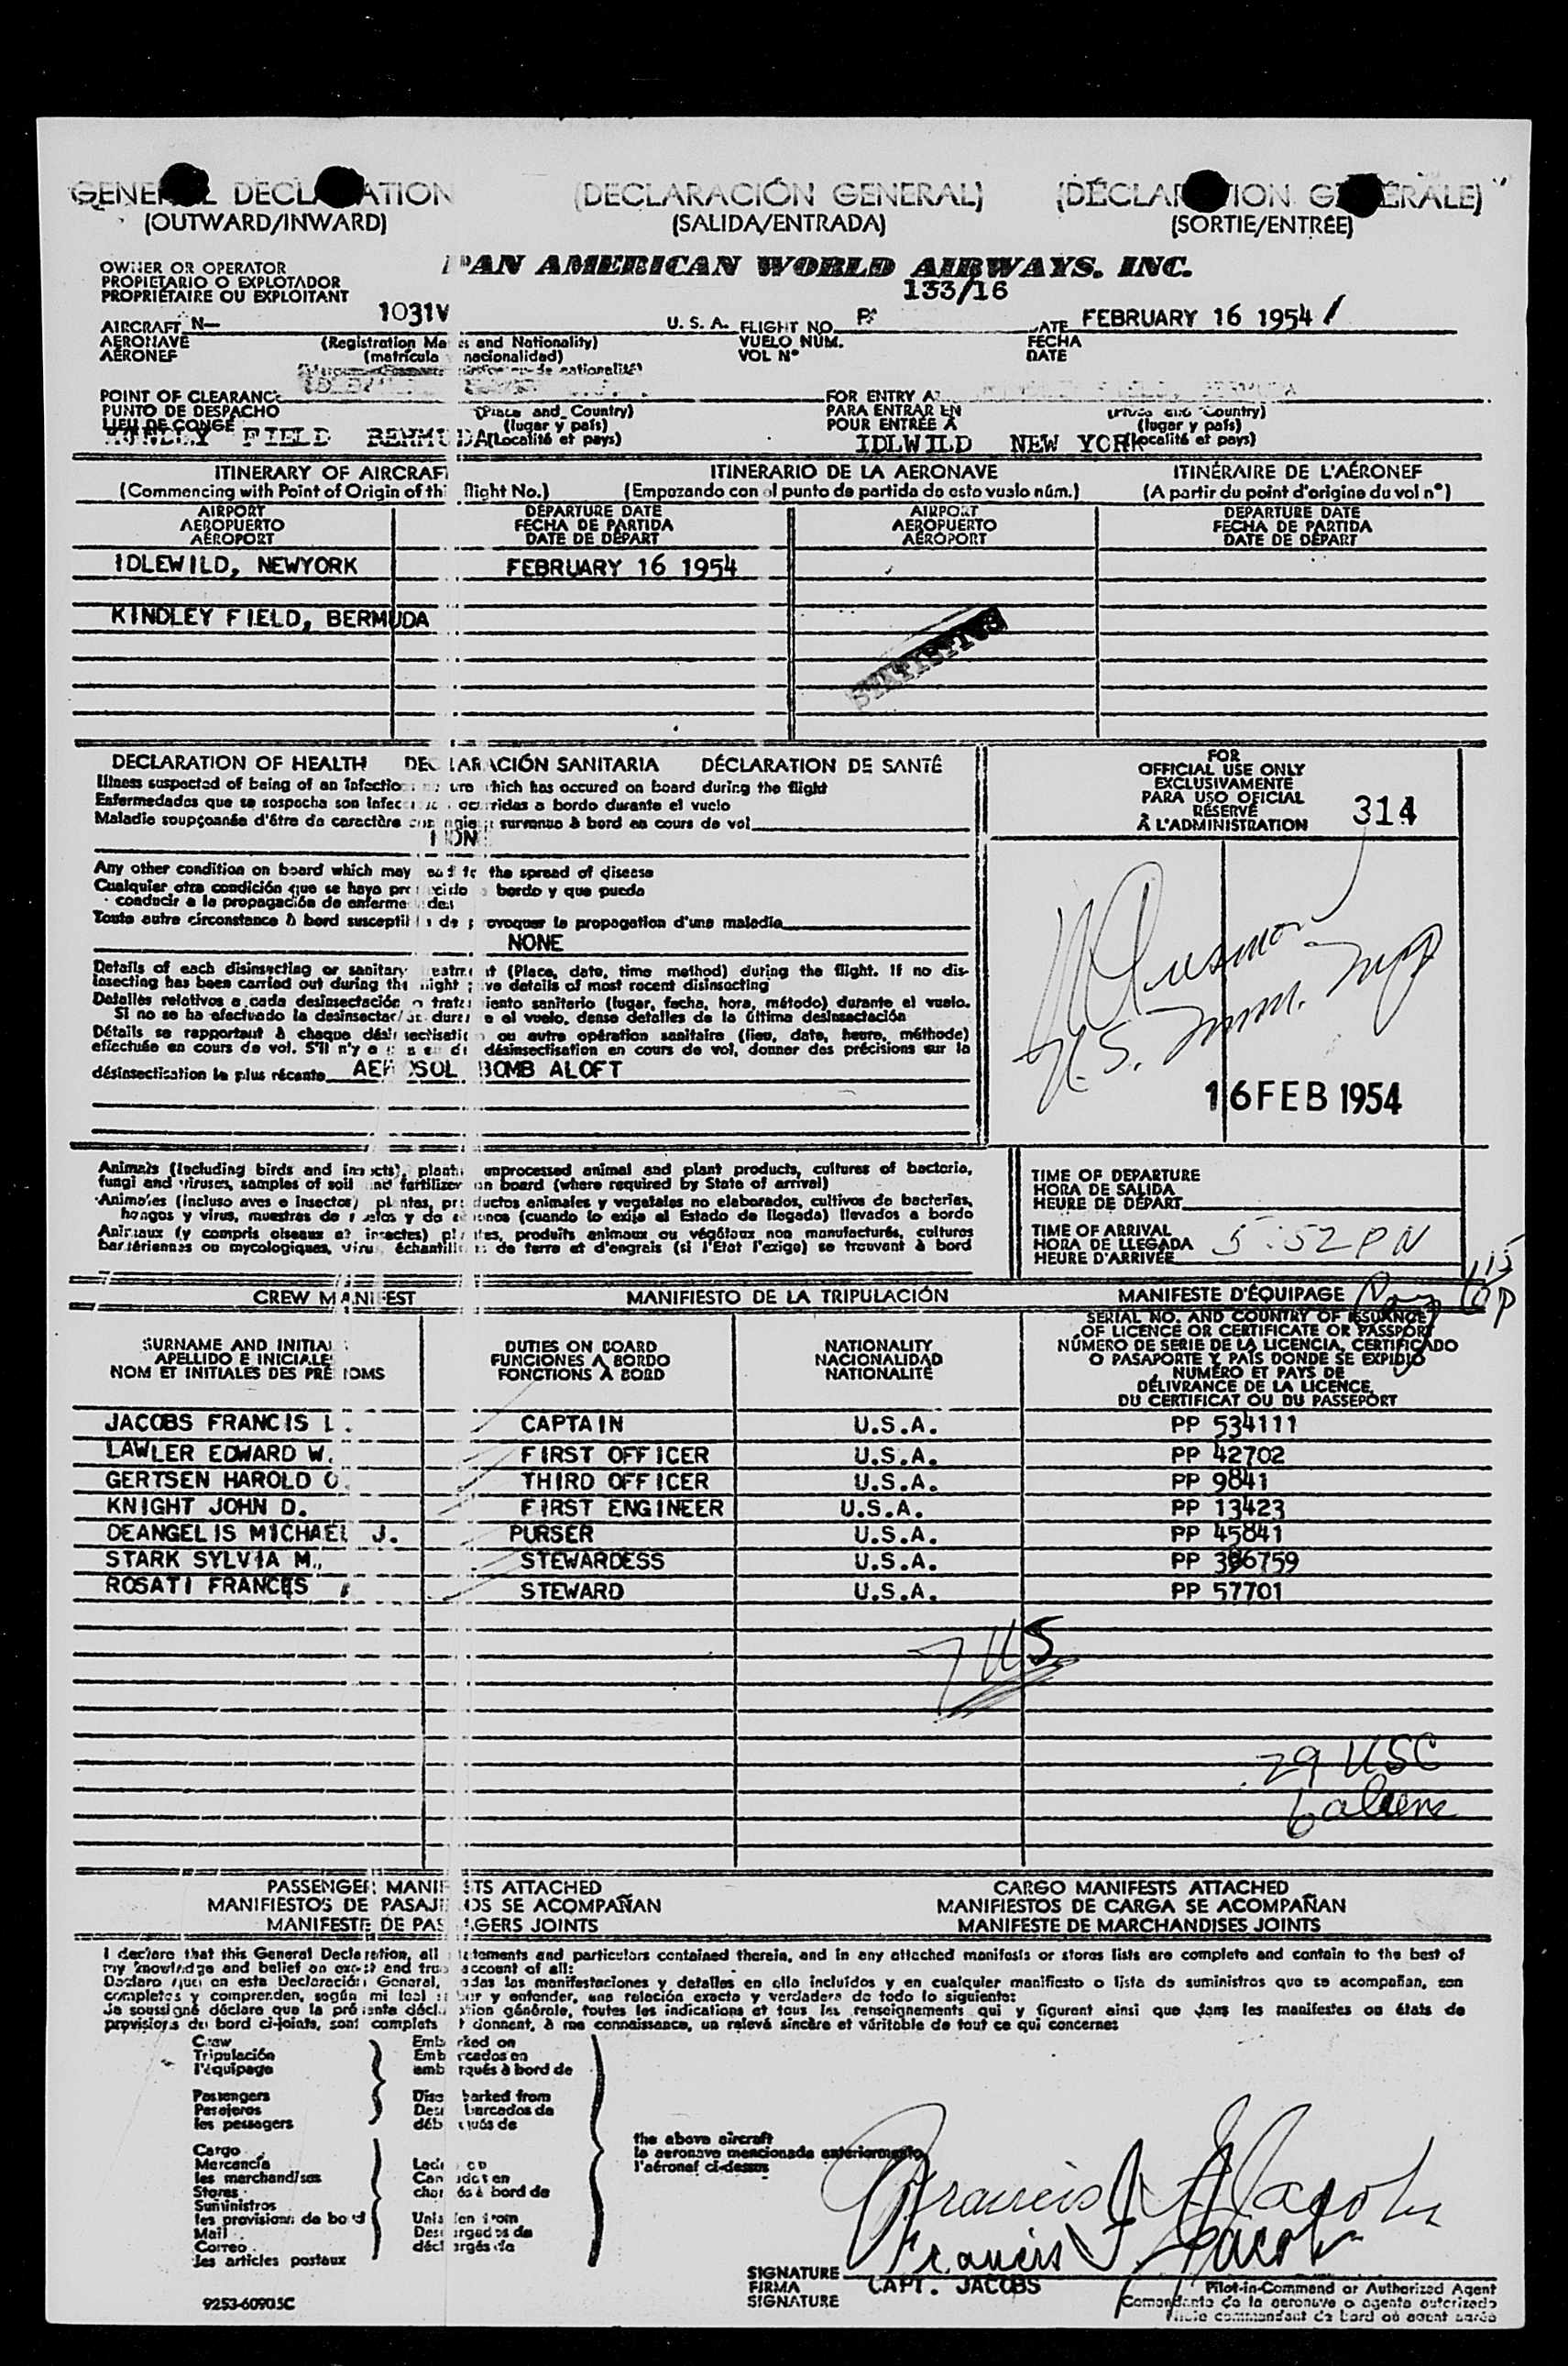 GENERAL DECLARATION (DECLARACIÓN GENERAL) (DÉCLARATION GÉNÉRALE)
(OUTWARD/INWARD) (SALIDA/ENTRADA) (SORTIE/ENTRÉE)
OWNER OR OPERATOR
PROPIETARIO O EXPLOTADOR
PROPRIÉTAIRE OU EXPLOITANT
PAN AMERICAN WORLD AIRWAYS. INC.
133/16
AIRCRAFT N— 1031V U. S. A. FLIGHT NO. DATE FEBRUARY 16 1954
AÉRONAVE (Registration Marks and Nationality) VUELO NÚM. FECHA
AÉRONEF (matrícula y nacionalidad) VOL Nº DATE
POINT OF CLEARANCE FOR ENTRY AT
PUNTO DE DESPACHO (Place and Country) PARA ENTRAR EN (Place and Country)
LIEU DE CONGÉ (lugar y país) POUR ENTRÉE À (lugar y país)
KINDLEY FIELD BERMUDA (Localité et pays) IDLWILD NEW YORK (Localité et pays)
ITINERARY OF AIRCRAFT ITINERARIO DE LA AERONAVE ITINÉRAIRE DE L'AÉRONEF
(Commencing with Point of Origin of this flight No.) (Empezando con el punto de partida de este vuelo núm.) (A partir du point d'origine du vol nº)
AIRPORT DEPARTURE DATE AIRPORT DEPARTURE DATE
AEROPUERTO FECHA DE PARTIDA AEROPUERTO FECHA DE PARTIDA
AÉROPORT DATE DE DÉPART AÉROPORT DATE DE DÉPART
IDLEWILD, NEWYORK FEBRUARY 16 1954
KINDLEY FIELD, BERMUDA
DECLARATION OF HEALTH DECLARACIÓN SANITARIA DÉCLARATION DE SANTÉ
Illness suspected of being of an infectious nature which has occured on board during the flight
Enfermedades que se sospecha son infecciosas ocurridas a bordo durante el vuelo
Maladie soupçonnée d'être de caractère contagieux survenue à bord en cours de vol
NONE
Any other condition on board which may lead to the spread of disease
Cualquier otra condición que se haya producido a bordo y que pueda
conducir a la propagación de enfermedades
Toute autre circonstance à bord susceptible de provoquer la propagation d'une maladie
NONE
Details of each disinsecting or sanitary treatment (Place, date, time method) during the flight. If no dis-
insecting has been carried out during the flight give details of most recent disinsecting
Detalles relativos a cada desinsectación o tratamiento sanitario (lugar, fecha, hora, método) durante el vuelo.
Si no se ha efectuado la desinsectación durante el vuelo, dense detalles de la última desinsectación
Détails se rapportant à chaque désinsectisation ou autre opération sanitaire (lieu, date, heure, méthode)
effectuée en cours de vol. S'il n'y a pas eu de désinsectisation en cours de vol, donner des précisions sur la
désinsectisation la plus récente AEROSOL BOMB ALOFT
FOR
OFFICIAL USE ONLY
EXCLUSIVAMENTE
PARA USO OFICIAL
RÉSERVÉ
À L'ADMINISTRATION
314
U.S. Imm. Insp
16 FEB 1954
Animals (including birds and insects), plants, unprocessed animal and plant products, cultures of bacteria,
fungi and viruses, samples of soil and fertilizer on board (where required by State of arrival)
Animales (incluso aves e insectos) plantas, productos animales y vegetales no elaborados, cultivos de bacterias,
hongos y virus, muestras de suelos y de abonos (cuando lo exija el Estado de llegada) llevados a bordo
Animaux (y compris oiseaux et insectes) plantes, produits animaux ou végétaux non manufacturés, cultures
bactériennes ou mycologiques, virus, échantillons de terre et d'engrais (si l'Etat l'exige) se trouvant à bord
TIME OF DEPARTURE
HORA DE SALIDA
HEURE DE DÉPART
TIME OF ARRIVAL
HORA DE LLEGADA 5:52 PM
HEURE D'ARRIVÉE
CREW MANIFEST MANIFIESTO DE LA TRIPULACIÓN MANIFESTE D'ÉQUIPAGE
SURNAME AND INITIALS
APELLIDO E INICIALES
NOM ET INITIALES DES PRÉNOMS
DUTIES ON BOARD
FUNCIONES A BORDO
FONCTIONS À BORD
NATIONALITY
NACIONALIDAD
NATIONALITÉ
SERIAL NO. AND COUNTRY OF ISSUANCE
OF LICENCE OR CERTIFICATE OR PASSPORT
NÚMERO DE SERIE DE LA LICENCIA, CERTIFICADO
O PASAPORTE Y PAÍS DONDE SE EXPIDIÓ
NUMÉRO ET PAYS DE
DÉLIVRANCE DE LA LICENCE,
DU CERTIFICAT OU DU PASSEPORT
JACOBS FRANCIS L. CAPTAIN U.S.A. PP 534111
LAWLER EDWARD W. FIRST OFFICER U.S.A. PP 42702
GERTSEN HAROLD O THIRD OFFICER U.S.A. PP 9841
KNIGHT JOHN D. FIRST ENGINEER U.S.A. PP 13423
DEANGELIS MICHAEL J. PURSER U.S.A. PP 45841
STARK SYLVIA M., STEWARDESS U.S.A. PP 396759
ROSATI FRANCES STEWARD U.S.A. PP 57701
7 US
29 USC
6 aliens
PASSENGER MANIFESTS ATTACHED CARGO MANIFESTS ATTACHED
MANIFIESTOS DE PASAJEROS SE ACOMPAÑAN MANIFIESTOS DE CARGA SE ACOMPAÑAN
MANIFESTE DE PASSAGERS JOINTS MANIFESTE DE MARCHANDISES JOINTS
I declare that this General Declaration, all statements and particulars contained therein, and in any attached manifests or stores lists are complete and contain to the best of
my knowledge and belief an exact and true account of all:
Declaro que en esta Declaración General, todas las manifestaciones y detalles en ella incluídos y en cualquier manifiesto o lista de suministros que se acompañan, son
completos y comprenden, según mi leal saber y entender, una relación exacta y verdadera de todo lo siguiente:
Je soussigné déclare que la présente déclaration générale, toutes les indications et tous les renseignements qui y figurent ainsi que dans les manifestes ou états de
provisions du bord ci-joints, sont complets et donnent, à ma connaissance, un relevé sincère et véritable de tout ce qui concerne:
Crew Embarked on
Tripulación Embarcados en
l'équipage embarqués à bord de
Passengers Disembarked from
Pasajeros Desembarcados de
les passagers débarqués de
the above aircraft
la aeronave mencionada anteriormente
l'aéronef ci-dessus
Cargo
Mercancía Laden on
les marchandises Cargados en
Stores chargés à bord de
Suministros
les provisions de bord Unladen from
Mail Descargados de
Correo déchargés de
les articles postaux
Francis J Jacobs
Francis J. Jacobs
SIGNATURE
FIRMA CAPT. JACOBS
SIGNATURE
Pilot-in-Command or Authorized Agent
Comandante de la aeronave o agente autorizado
Pilote commandant de bord ou agent agréé
9253-60905C